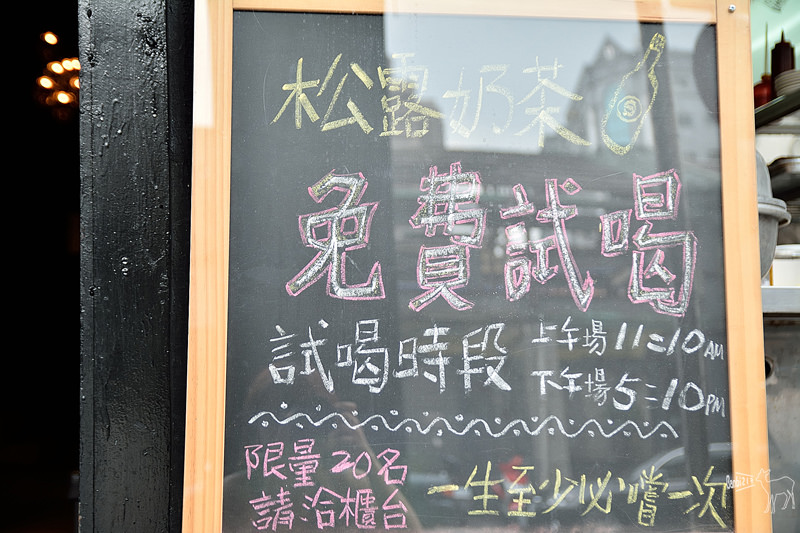 松露奶茶
免費試喝
試喝時段 上午場 11:10AM
下午場 5:10PM
限量20名
請洽櫃台
一生至少必嚐一次